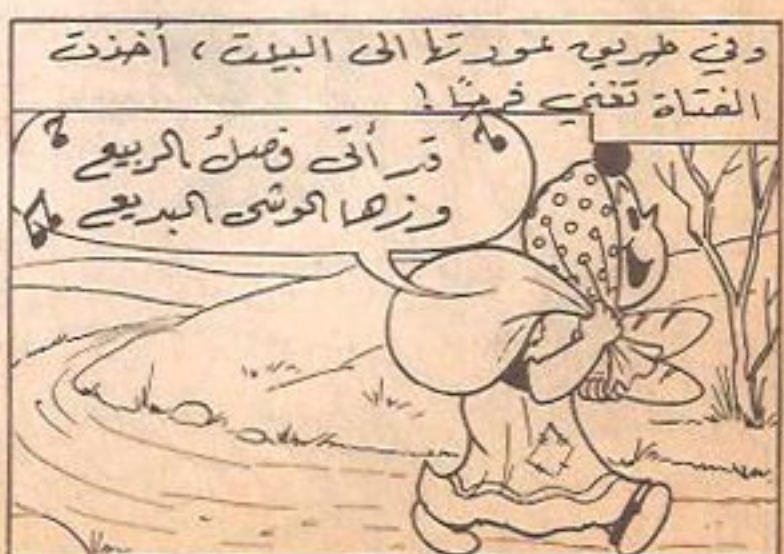 وفي طريق عودتها الى البيت، أخذت
الفتاة تغني فرحًا!
قد أتى فصلُ الربيع
وزها الوشى البديع